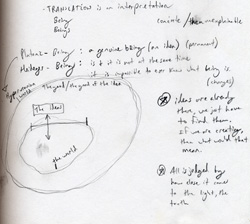 - TRANSLATION is an interpretation
Being
Being
concrete /
Plato - Being : a genuine being (an idea) (permanent)
- Being : is + it is not at the same time
it is impossible to ever know what being is.
(changes)
the good / the good of the idea
the ideas
the world
ideas are already
there, we just have
to find them.
If we create,
then what would that
mean.
All is judged by
how close it comes
to the light, the
truth